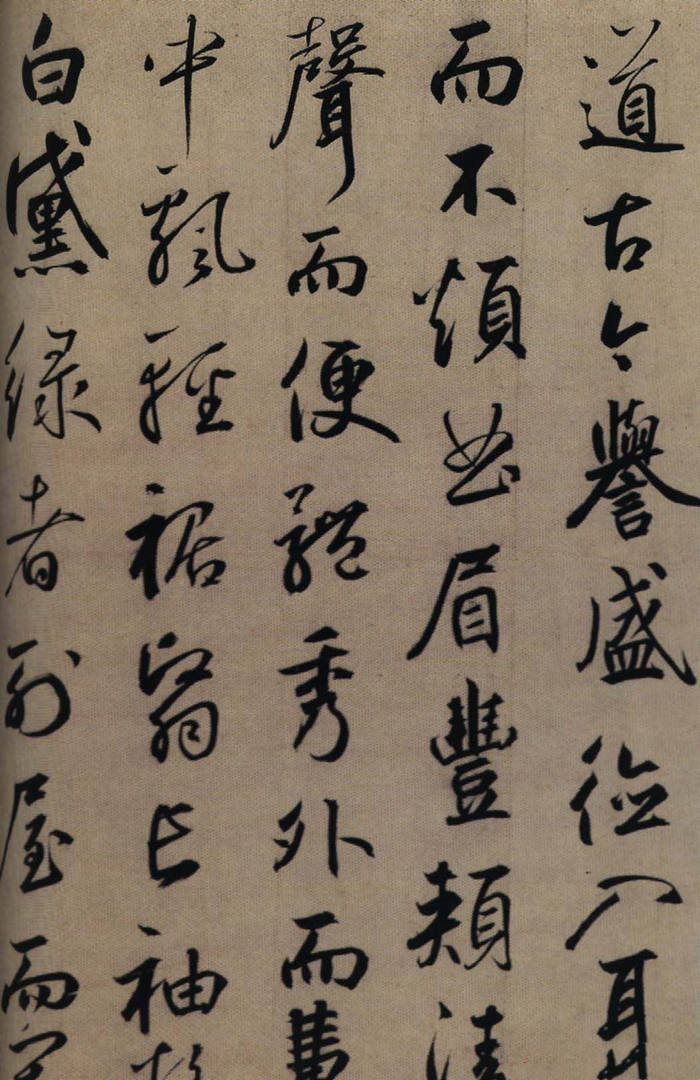 道古今譽盛德入耳
而不煩曲眉豐頰清
聲而便體秀外而
中飄輕裾翳長袖
白黛綠者列屋而